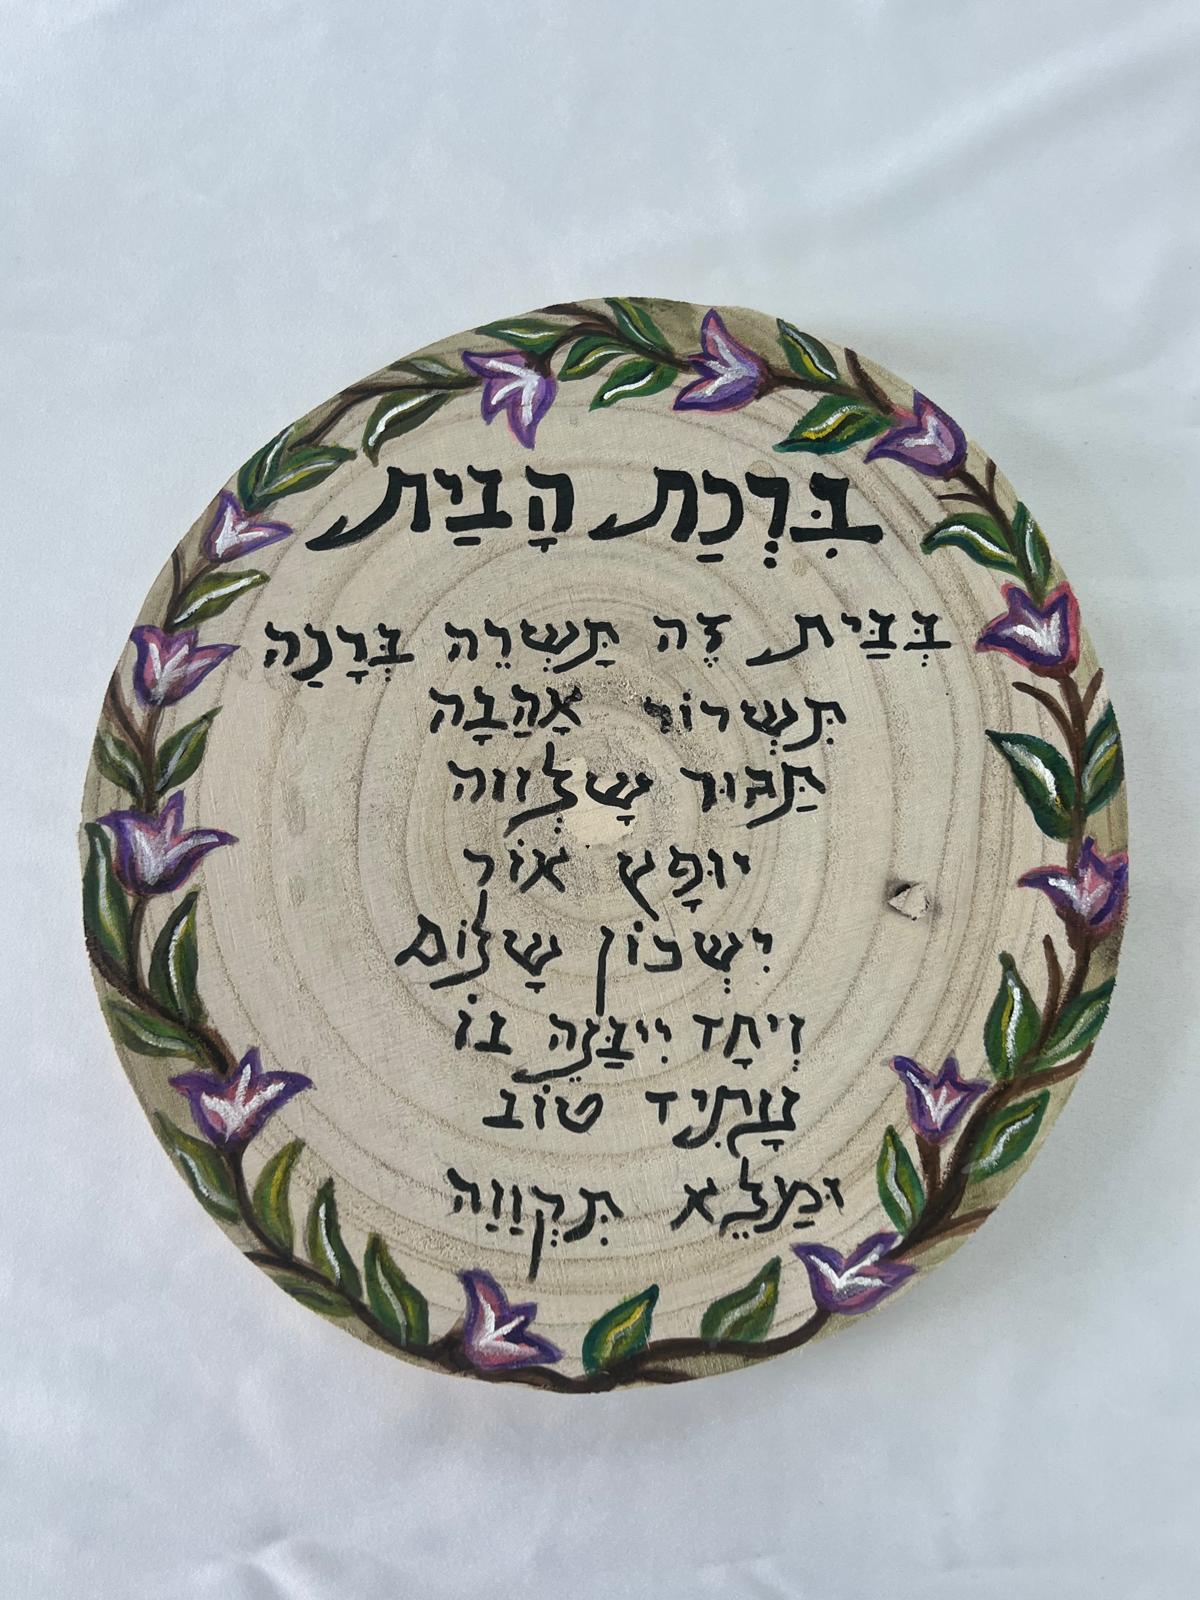 בִּרְכַת הָבַיִת
בְּבַּיִת זֶה תָּשְׁרֵה בְּרָכַה
תִּשְׂרוֹר אַהַבָה
תַּכּוּר שָׁלְווה
יוּפָץ אוֹר
יִשְׁכּוֹן שָׁלוֹם
וְיחָד יִיבַּנֵה בּוֹ
עָתִיד טוֹב
וּמַלֵא תִּקְוַוה